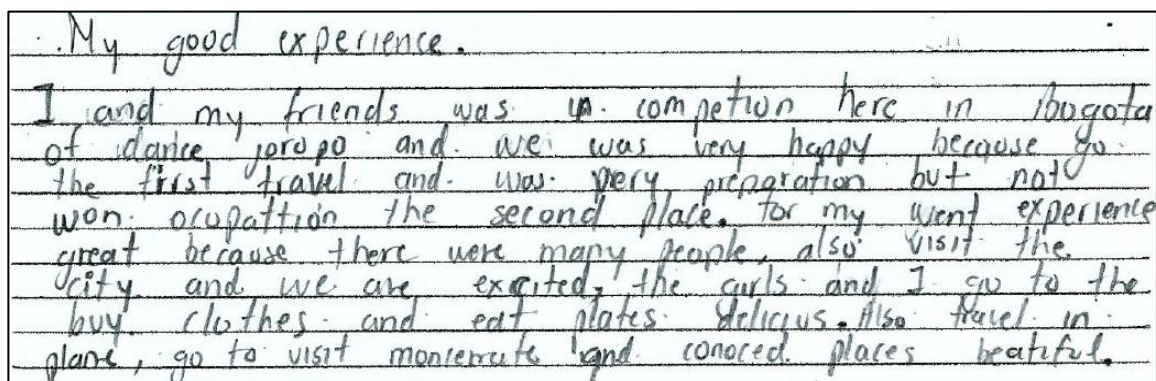 .My good experience.
I and my friends was in competion here in bogota
of dance joropo and we was very happy because go
the first travel and was very preparation but not
won ocupattión the second place. for my went experience
great because there were many people, also visit the
city and we are excited, the girls and I go to the
buy clothes and eat plates delicius. Also travel in
plane, go to visit moncerrate and conoced places beatiful.